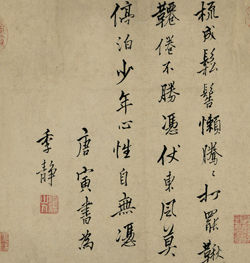 梳成鬆髻懶騰〻打罷鞦
韆倦不勝憑仗東風莫
停泊少年心性自無憑
唐寅書為
季静